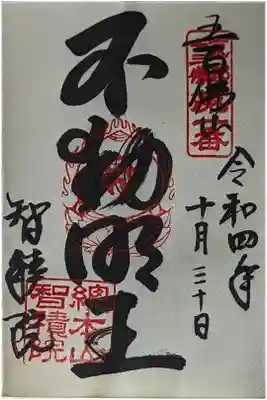 五百佛
令和四年
十月三十日
不動明王
智積院
總本山
智積院